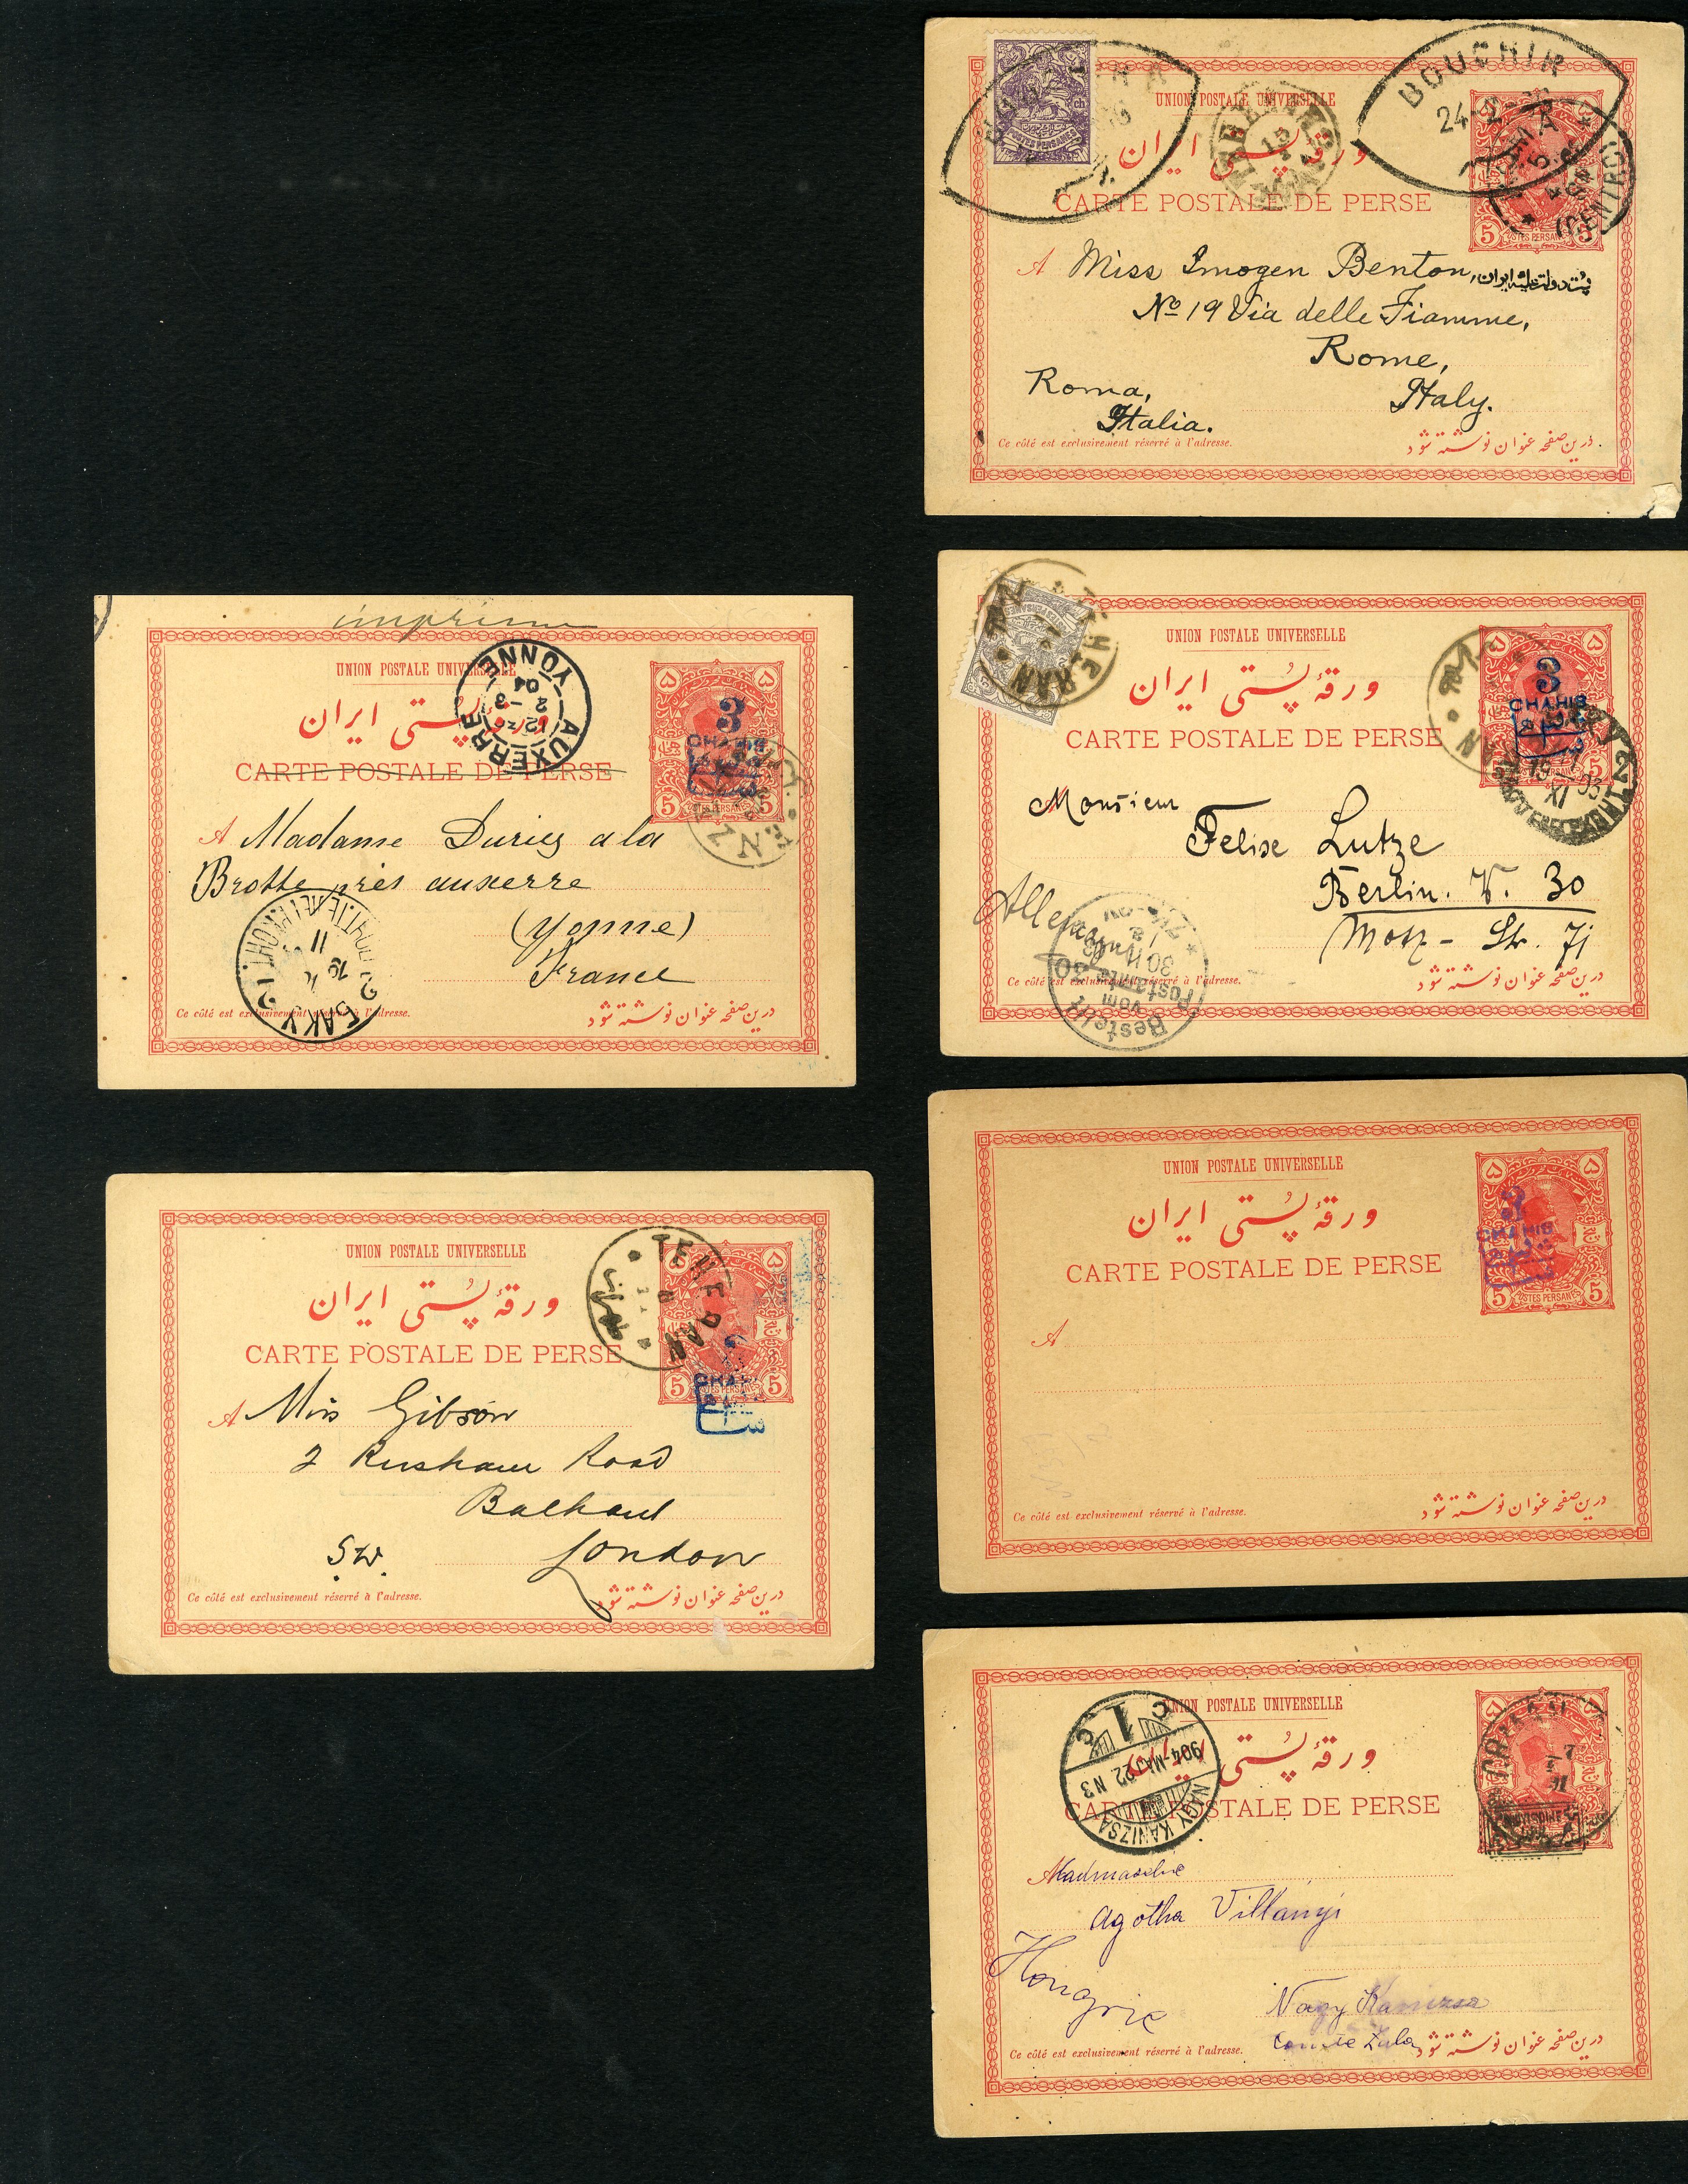 BOUCHIR
24-2
ROMA
(CENTRO)
5
UNION POSTALE UNIVERSELLE
ورقهٔ پُستی ایران
CARTE POSTALE DE PERSE
POSTES PERSANES
5 5
A Miss Imogen Benton,
پست دولت علیه ایران
No 19 Via delle Fiamme,
Rome,
Italy.
Roma,
Italia.
Ce côté est exclusivement réservé à l'adresse.
درین صفحه عنوان نوشته شود
imprimé
UNION POSTALE UNIVERSELLE
ورقهٔ پُستی ایران
CARTE POSTALE DE PERSE
AUXERRE
YONNE
2 -3
04
3
CHAHIS
5 5
A Madame
a la
Brotte près auxerre
(Yonne)
France
БАКУ
11
Ce côté est exclusivement réservé à l'adresse.
درین صفحه عنوان نوشته شود
TEHERAN
UNION POSTALE UNIVERSELLE
ورقهٔ پُستی ایران
CARTE POSTALE DE PERSE
3
CHAHIS
Monsieur
Felise Lutze
Berlin. W. 30
Motz - Str. 71
Allemagne
Bestellt
vom
Postamte 30
Ce côté est exclusivement réservé à l'adresse.
درین صفحه عنوان نوشته شود
UNION POSTALE UNIVERSELLE
ورقهٔ پُستی ایران
CARTE POSTALE DE PERSE
TEHERAN
طهران
CHAHIS
5 5
A Miss Gibson
2 Rusham Road
Balham
S.W.
London
Ce côté est exclusivement réservé à l'adresse.
درین صفحه عنوان نوشته شود
UNION POSTALE UNIVERSELLE
ورقهٔ پُستی ایران
CARTE POSTALE DE PERSE
3
CHAHIS
5 5
POSTES PERSANES
A
Ce côté est exclusivement réservé à l'adresse.
درین صفحه عنوان نوشته شود
UNION POSTALE UNIVERSELLE
ورقهٔ پُستی ایران
CARTE POSTALE DE PERSE
NAGY KANIZSA
904-MAJ 22 N3
C 1 C
Agotha Villányi
Hongrie
Nagy Kanizsa
Comte Zala
Ce côté est exclusivement réservé à l'adresse.
درین صفحه عنوان نوشته شود